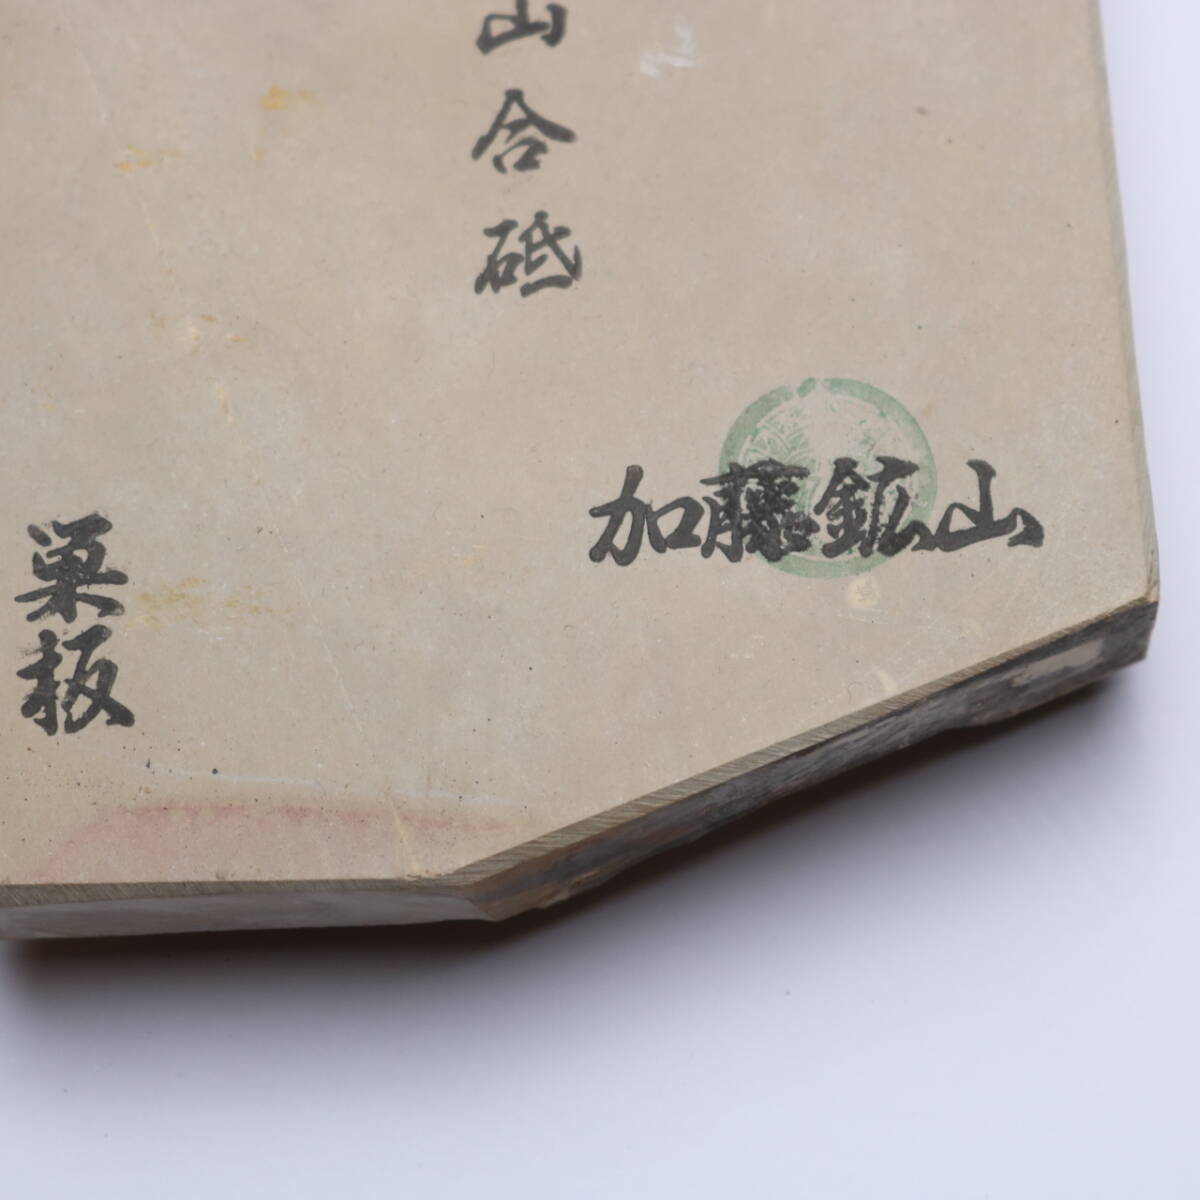 山合砥
加藤鉱山
巣板